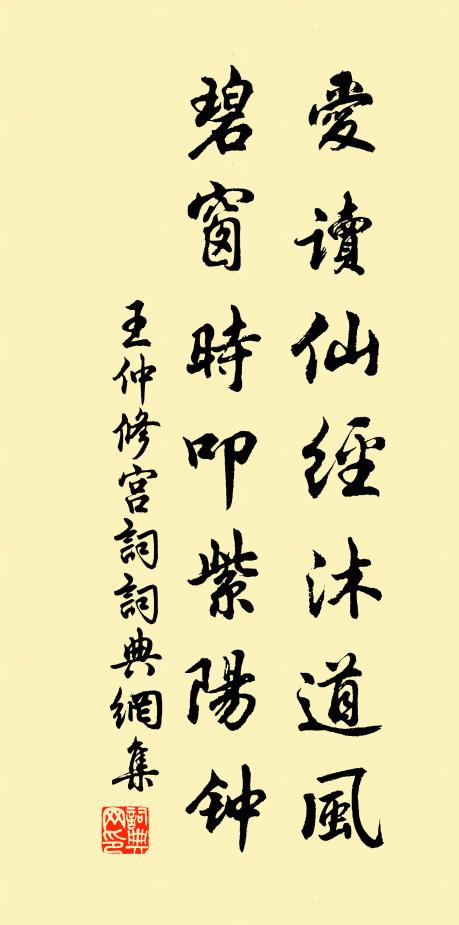 愛讀仙經沐道風
碧窗時叩紫陽钟
王仲修宮詞詞典網集
詞典网印